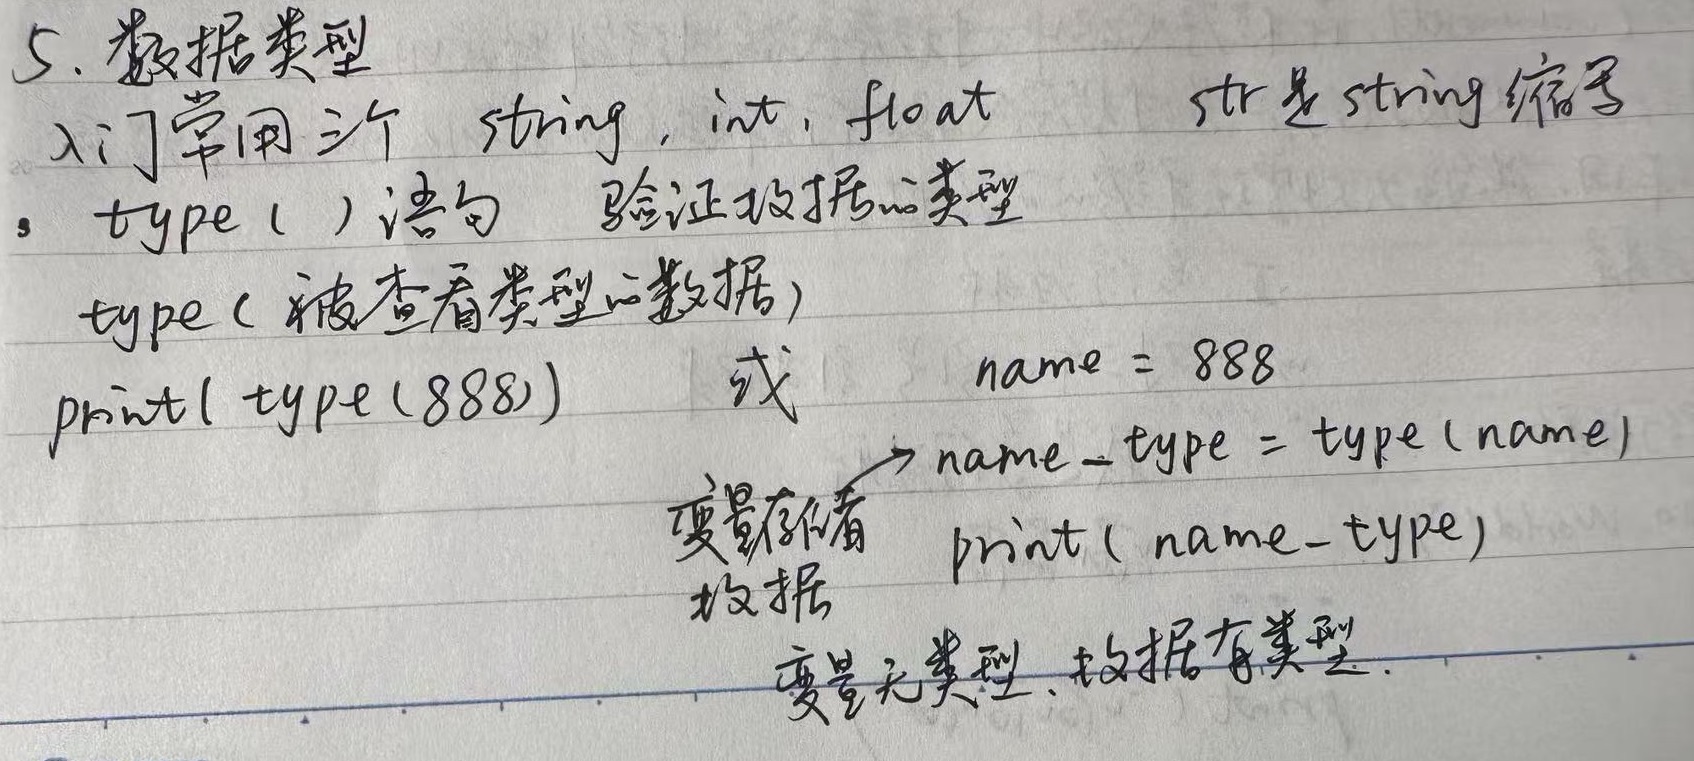 5. 数据类型
入门常用三个 string, int, float str是string缩写
type ( ) 语句 验证数据的类型
type ( 被查看类型的数据)
print( type (888)) 或 name = 888
name_type = type (name)
变量存储数据
print( name_type)
变量无类型.数据有类型.